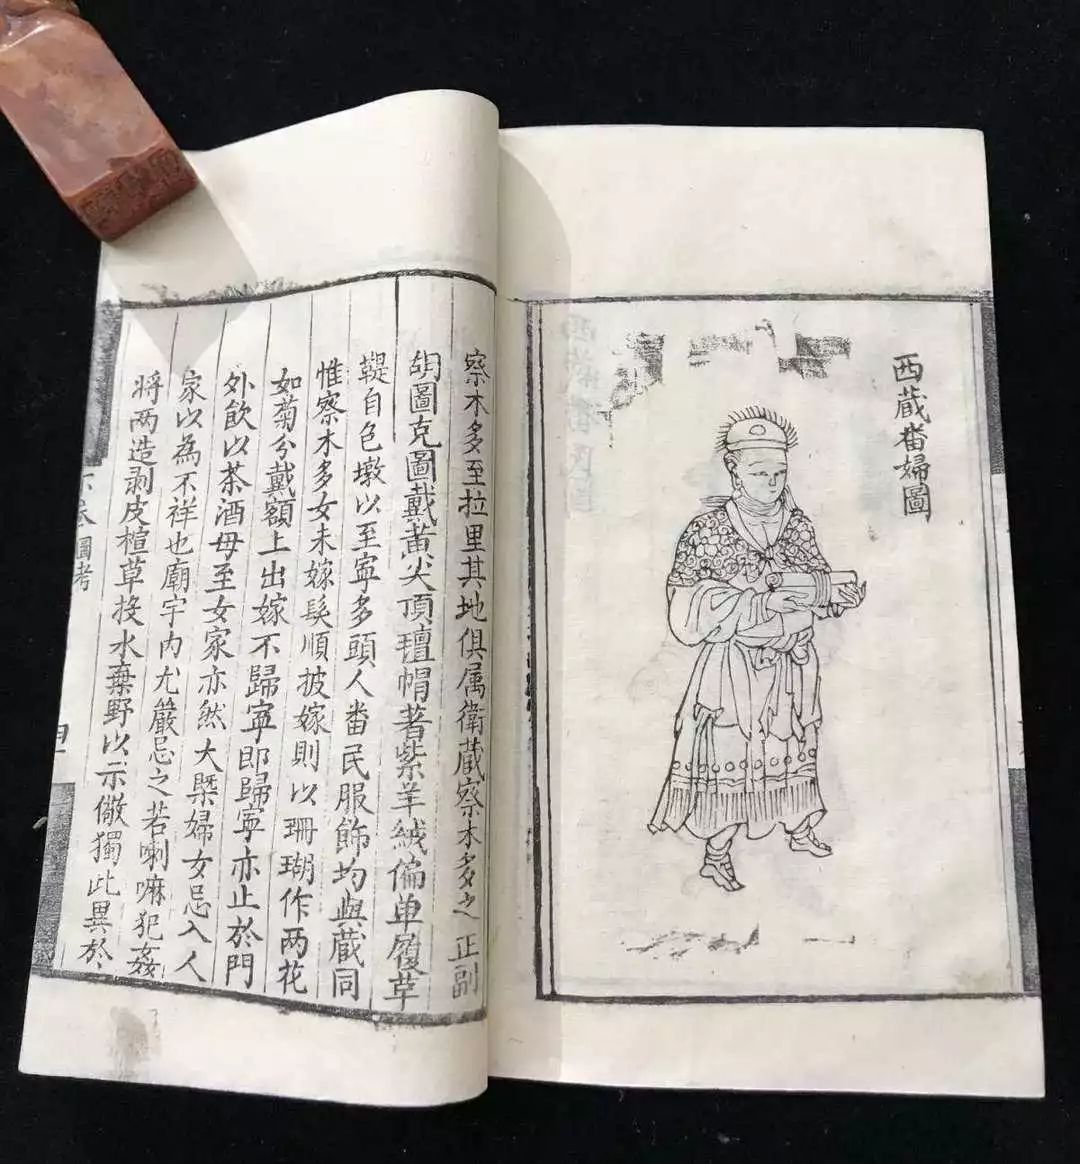 西蔵畨婦圖
察木多至拉里其地俱属衛蔵察木多之正副
胡圖克圖戴黄尖頂氊帽著紫羊絨偏单履草
鞮自色墩以至寧多頭人畨民服飾均與蔵同
惟察木多女未嫁髮順披嫁則以珊瑚作两花
如菊分戴額上出嫁不歸寧即歸寧亦止於門
外飲以茶酒母至女家亦然大槩婦女忌入人
家以為不祥也廟宇内尤嚴忌之若喇嘛犯姦
将两造剥皮楦草投水棄野以示儆獨此異於
圖考